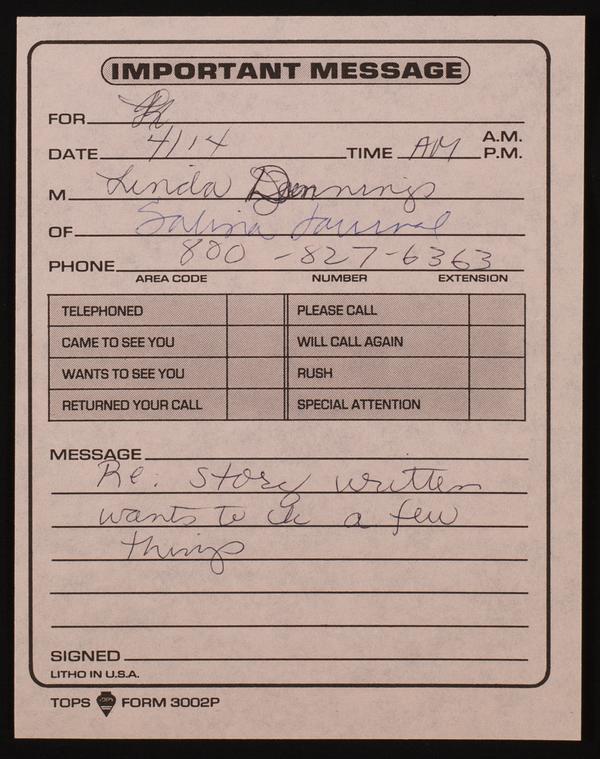 IMPORTANT MESSAGE
FOR
DATE 4/14 TIME AM A.M. P.M.
M Linda Dennings
OF Salina Journal
PHONE 800-827-6363
AREA CODE NUMBER EXTENSION
TELEPHONED PLEASE CALL
CAME TO SEE YOU WILL CALL AGAIN
WANTS TO SEE YOU RUSH
RETURNED YOUR CALL SPECIAL ATTENTION
MESSAGE
Re: story written
wants to ck a few
things
SIGNED
LITHO IN U.S.A.
TOPS FORM 3002P